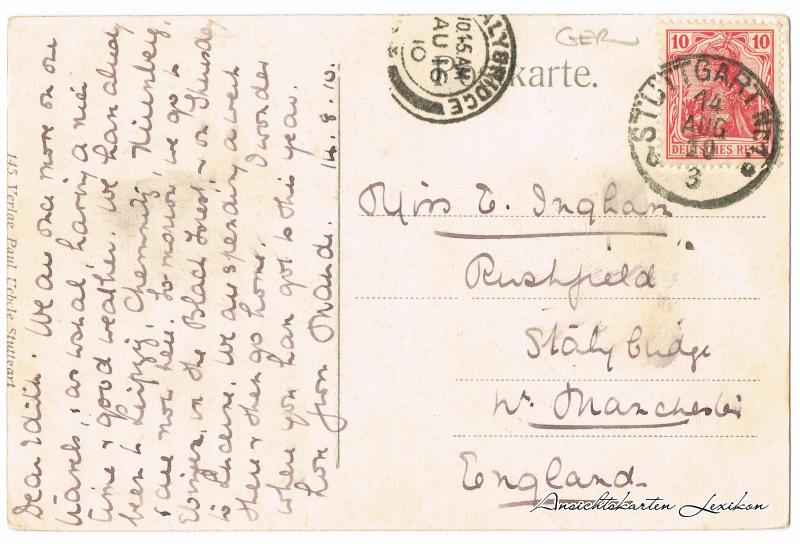 Dear Edith. We are once more on our
travels, & as usual, having a nice
time & good weather. We have already
been to Leipzig, Chemnitz, Nürnberg,
& are now here. To-morrow, we go to
Ebingen, in the Black Forest & on Thursday
to Lucerne. We are spending a week
there & then go home. I wonder
where you have got to this year.
Love from Maude. 14.8.10.
145 Verlag Paul Uebele Stuttgart
STALYBRIDGE
10.45 AM
AU 16
10
GER
karte.
10 10
DEUTSCHES REICH
STUTTGART
14
AUG
10
3
Miss E. Ingham
Rushfield
Stalybridge
Nr. Manchester
England
Ansichtskarten Lexikon